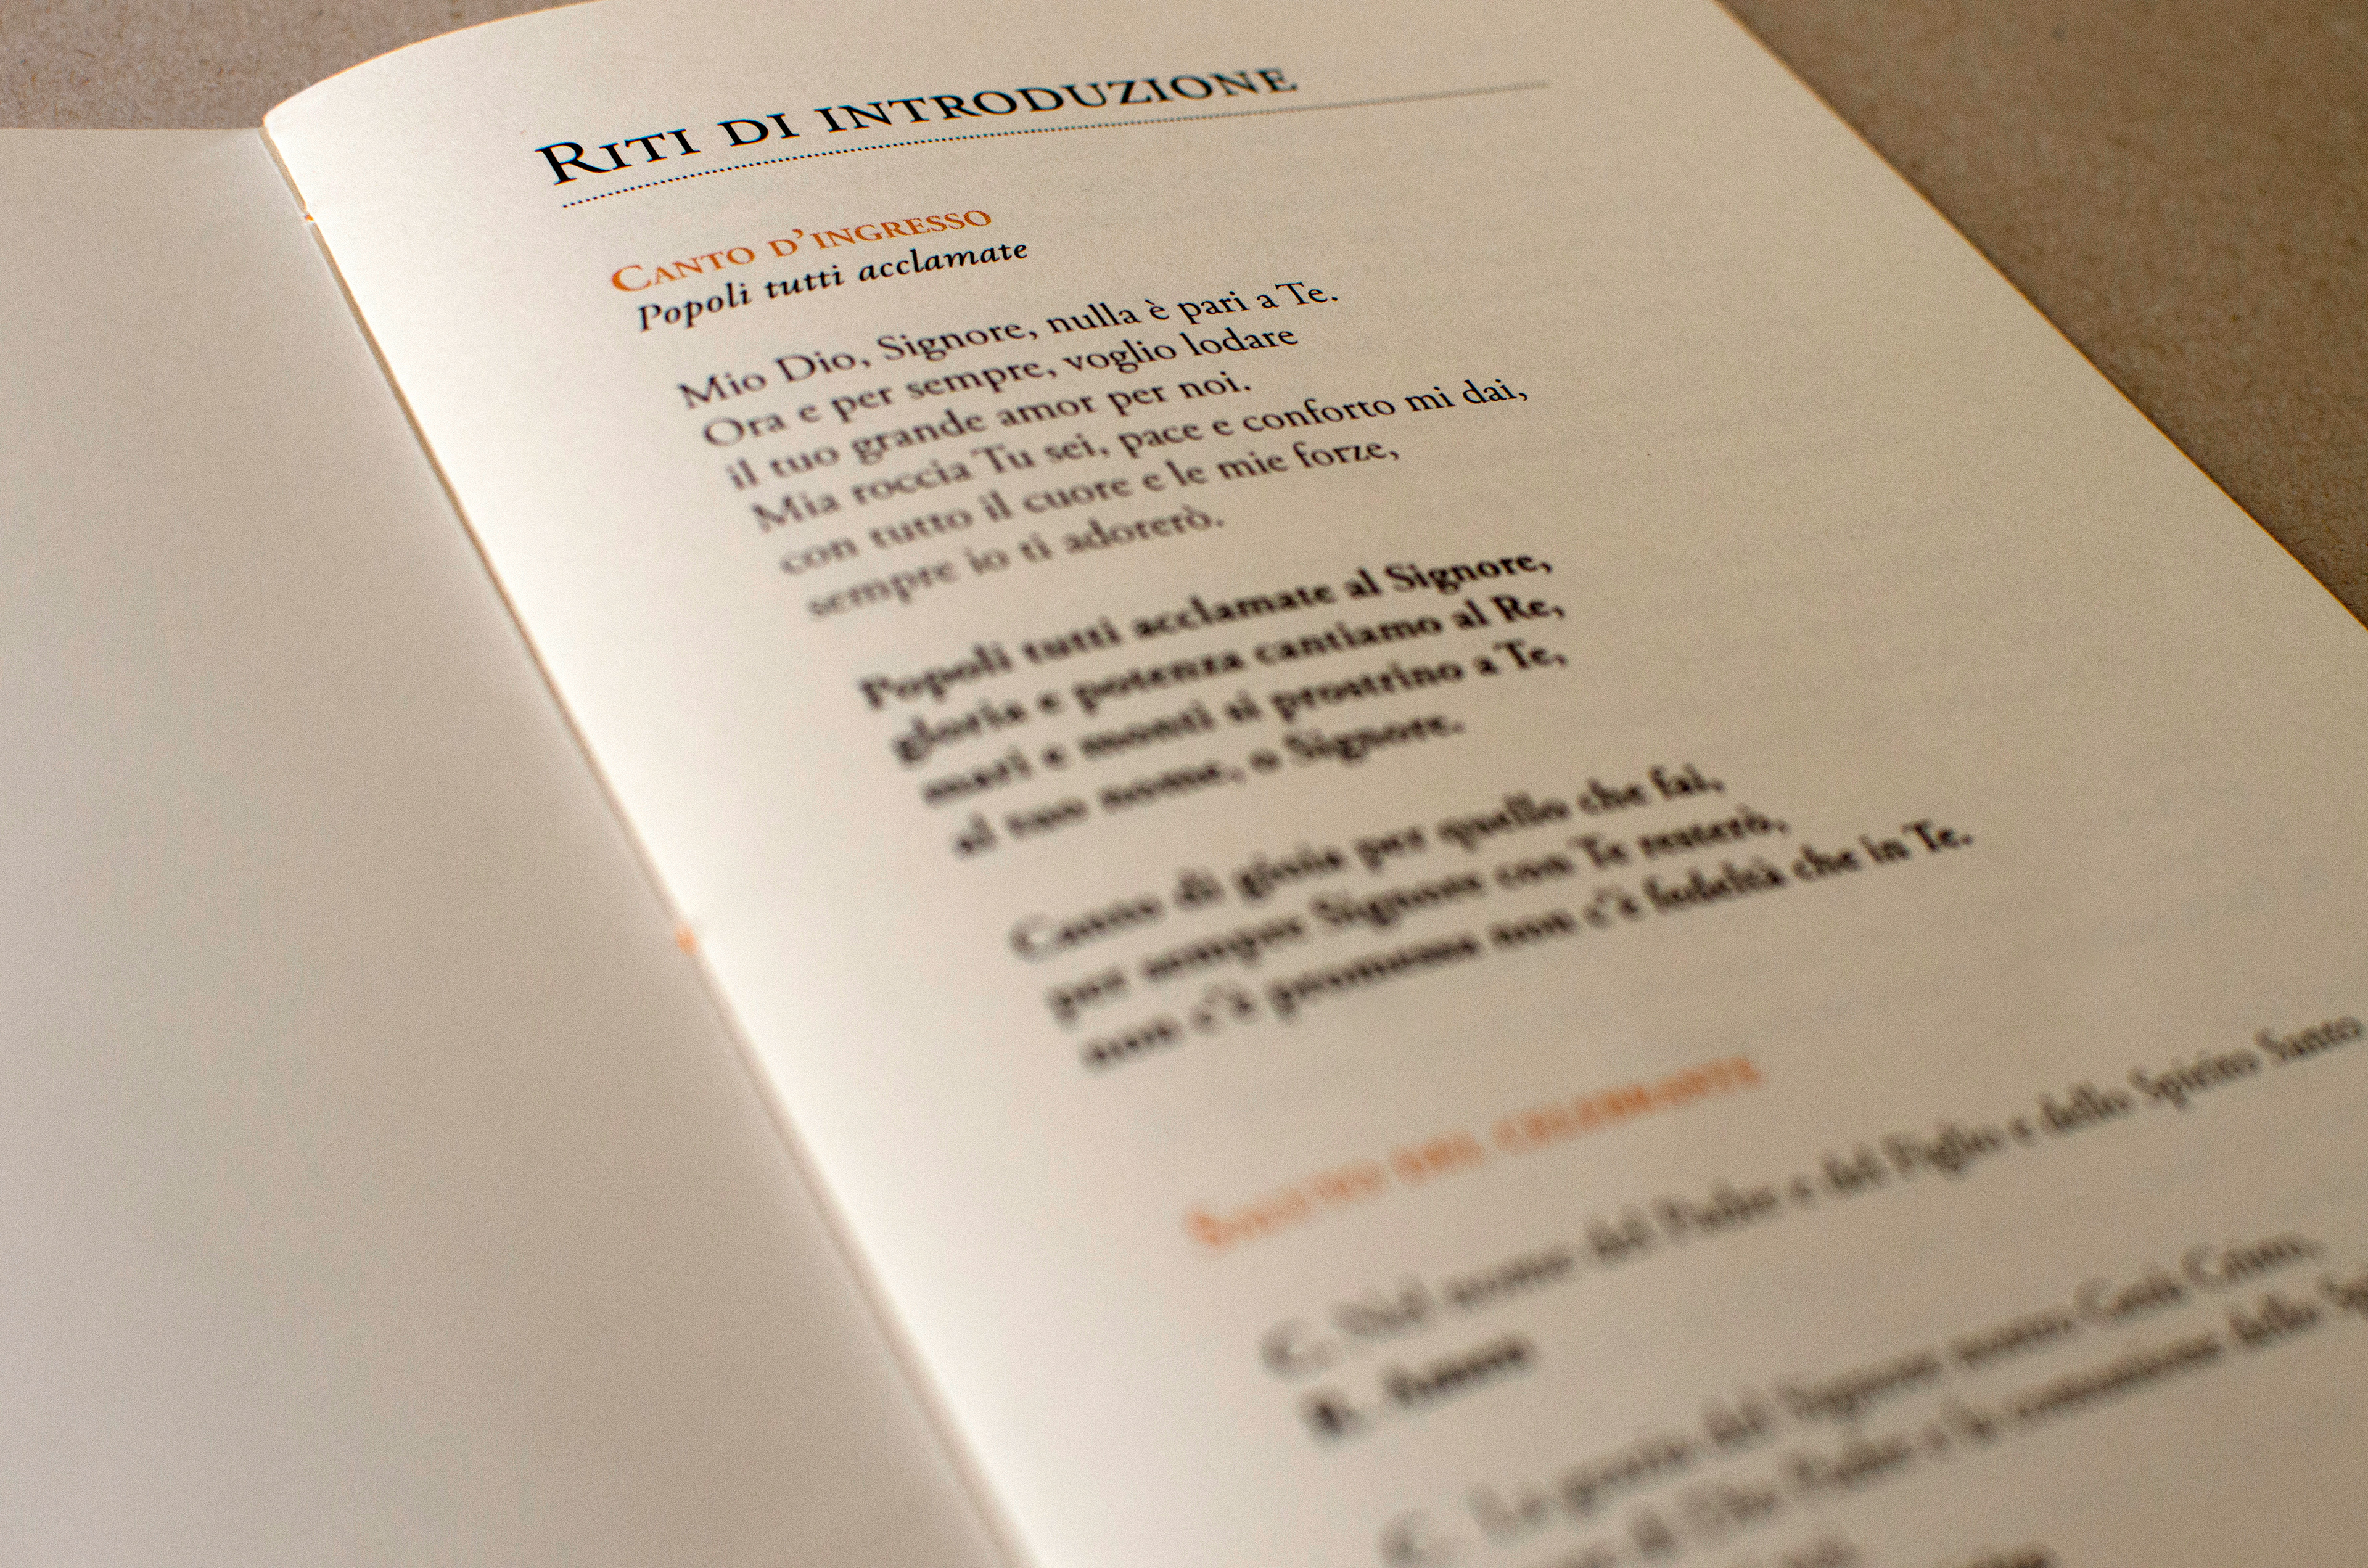 Riti di introduzione
Canto d'ingresso
Popoli tutti acclamate
Mio Dio, Signore, nulla è pari a Te.
Ora e per sempre, voglio lodare
il tuo grande amor per noi.
Mia roccia Tu sei, pace e conforto mi dai,
con tutto il cuore e le mie forze,
sempre io ti adorerò.
Popoli tutti acclamate al Signore,
gloria e potenza cantiamo al Re,
mari e monti si prostrino a Te,
al tuo nome, o Signore.
Canto di gioia per quello che fai,
per sempre Signore con Te resterò,
non c'è promessa non c'è fedeltà che in Te.
Saluto del celebrante
C. Nel nome del Padre e del Figlio e dello Spirito Santo
R. Amen
C. La grazia del Signore nostro Gesù Cristo,
di Dio Padre e la comunione dello